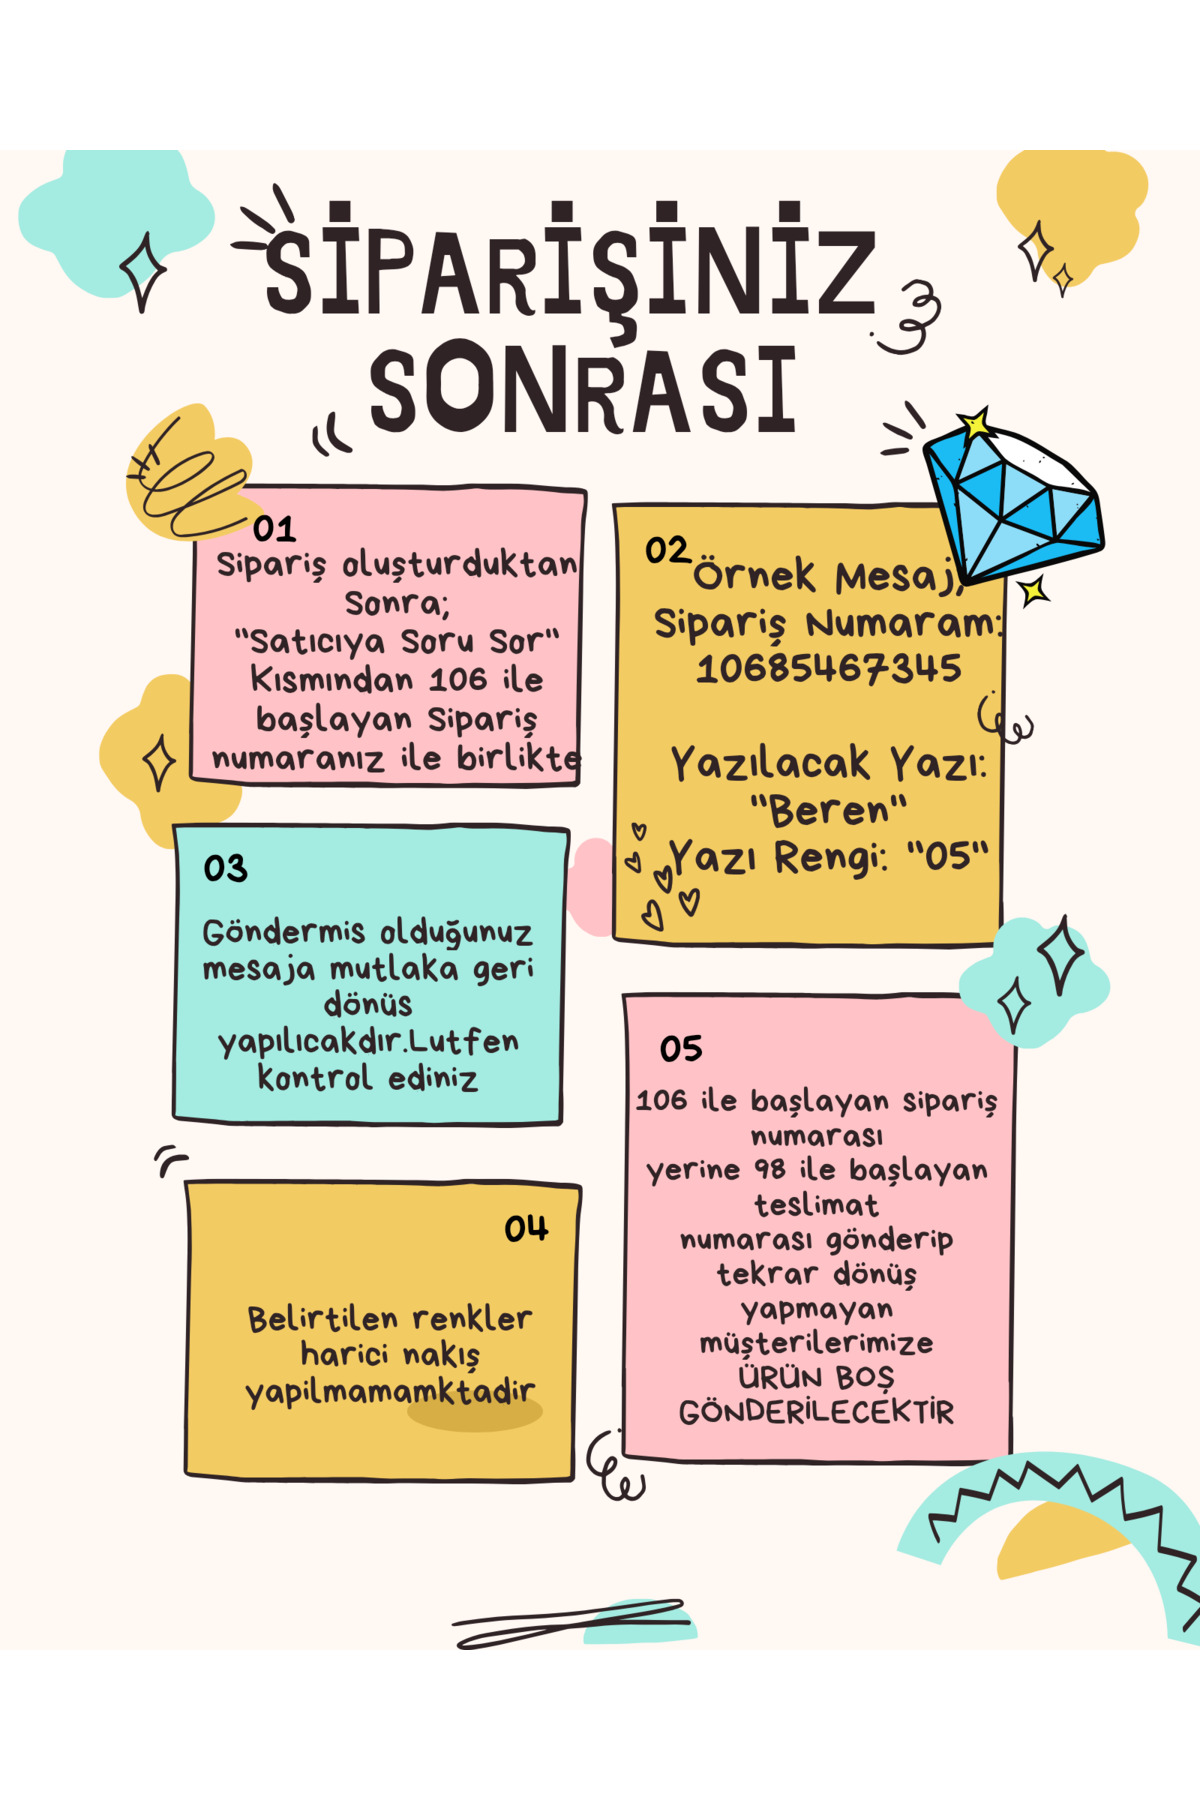 SİPARİŞİNİZ
SONRASI
01
Sipariş oluşturduktan
Sonra;
"Satıcıya Soru Sor"
Kısmından 106 ile
başlayan Sipariş
numaranız ile birlikte
02
Örnek Mesaj;
Sipariş Numaram:
10685467345
Yazılacak Yazı:
"Beren"
Yazı Rengi: "05"
03
Göndermis olduğunuz
mesaja mutlaka geri
dönüs
yapılıcakdır.Lutfen
kontrol ediniz
04
Belirtilen renkler
harici nakış
yapilmamamktadir
05
106 ile başlayan sipariş
numarası
yerine 98 ile başlayan
teslimat
numarası gönderip
tekrar dönüş
yapmayan
müşterilerimize
ÜRÜN BOŞ
GÖNDERİLECEKTİR